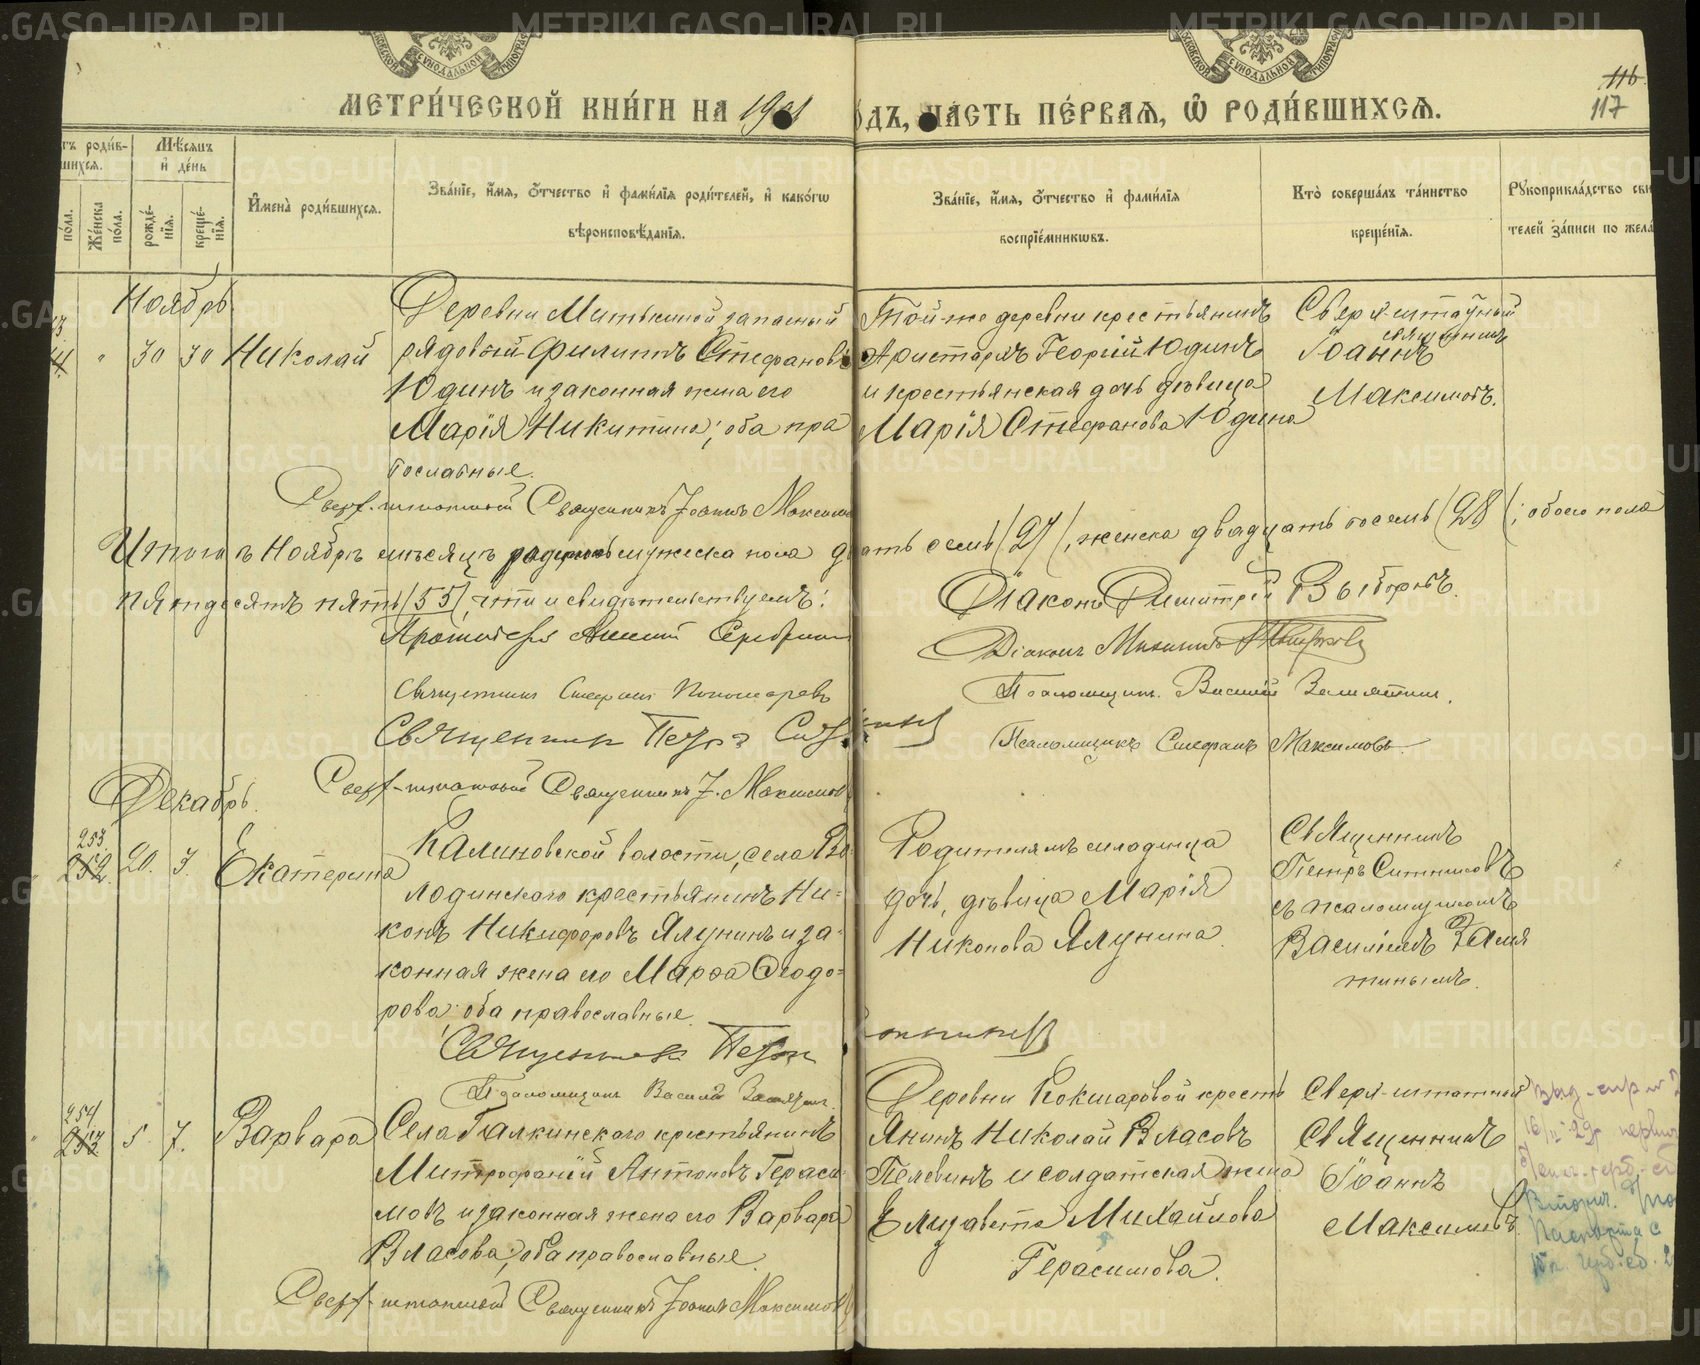 МЕТРИ́ЧЕСКОЙ КНИ́ГИ НА 1901
ОДЪ, ЧА́СТЬ ПЕ́РВАЯ, Ѡ҆ РОДИ́ВШИХСѦ.
116
117
тъ роди́в-
шихсѧ.
Мѣ́сѧцъ
и҆ де́нь
по́ла.
Же́нска
по́ла.
рожде́-
нїѧ.
креще́-
нїѧ.
И҆мена̀ роди́вшихсѧ.
Зва́нїе, и҆́мѧ, ѻ҆́тчество и҆ фами́лїѧ роди́телей, и҆ како́гѡ
вѣроисповѣ́данїѧ.
Зва́нїе, и҆́мѧ, ѻ҆́тчество и҆ фами́лїѧ
воспрїе́мникѡвъ.
Кто̀ соверша́лъ та́инство
креще́нїѧ.
Рꙋкоприкла́дство сви
телей за́писи по жела
Ноябрь
30 30 Николай
Деревни Митькиной запасный
рядовой Филиппъ Стефановъ
Юдинъ и законная жена его
Марія Никитина; оба пра
вославные.
Той-же деревни крестьянинъ
Аристархъ Георгій Юдинъ
и крестьянская дочь дѣвица
Марія Стефанова Юдина
Сверх-штатный
священникъ
Іоаннъ
Максимовъ.
Сверх-штатный Священникъ Іоаннъ Максимов
Итого въ Ноябрѣ мѣсяцѣ родилось мужеска пола двадцать семь (27), женска двадцать восемь (28); обоего пола
пятьдесятъ пять (55), что и свидѣтельствуемъ:
Протоіерей
Священникъ Стефанъ Пономаревъ
Священникъ Петръ Ситниковъ
Сверх-штатный Священникъ І. Максимов
Діаконъ Димитрій Выборовъ.
Діаконъ
Псаломщикъ Василій Замятин.
Псаломщикъ Стефанъ Максимовъ
Декабрь.
253
252 20. 3. Екатерина
Калиновской волости, села Во-
лодинского крестьянинъ Ни-
конъ Никифоровъ Ялунинъ и за-
конная жена его Марѳа Ѳеодо-
рова: оба православные.
Родителямъ младенца
дочь, дѣвица Марія
Никонова Ялунина.
Священникъ
Петръ Ситниковъ
съ псаломщикомъ
Василіемъ Замя
тинымъ.
Священникъ Петръ Ситниковъ
Псаломщикъ Василій Замятин.
254
253 5 7. Варвара
Села Галкинского крестьянинъ
Митрофаній Антоновъ Гераси-
мовъ и законная жена его Варвара
Власова; оба православные.
Деревни Кокшаровой кресть
янинъ Николай Власовъ
Пелевинъ и солдатская жена
Елизавета Михайлова
Герасимова.
Сверх-штатный
Священникъ
Іоаннъ
Максимовъ.
Сверх-штатный Священникъ Іоаннъ Максимов